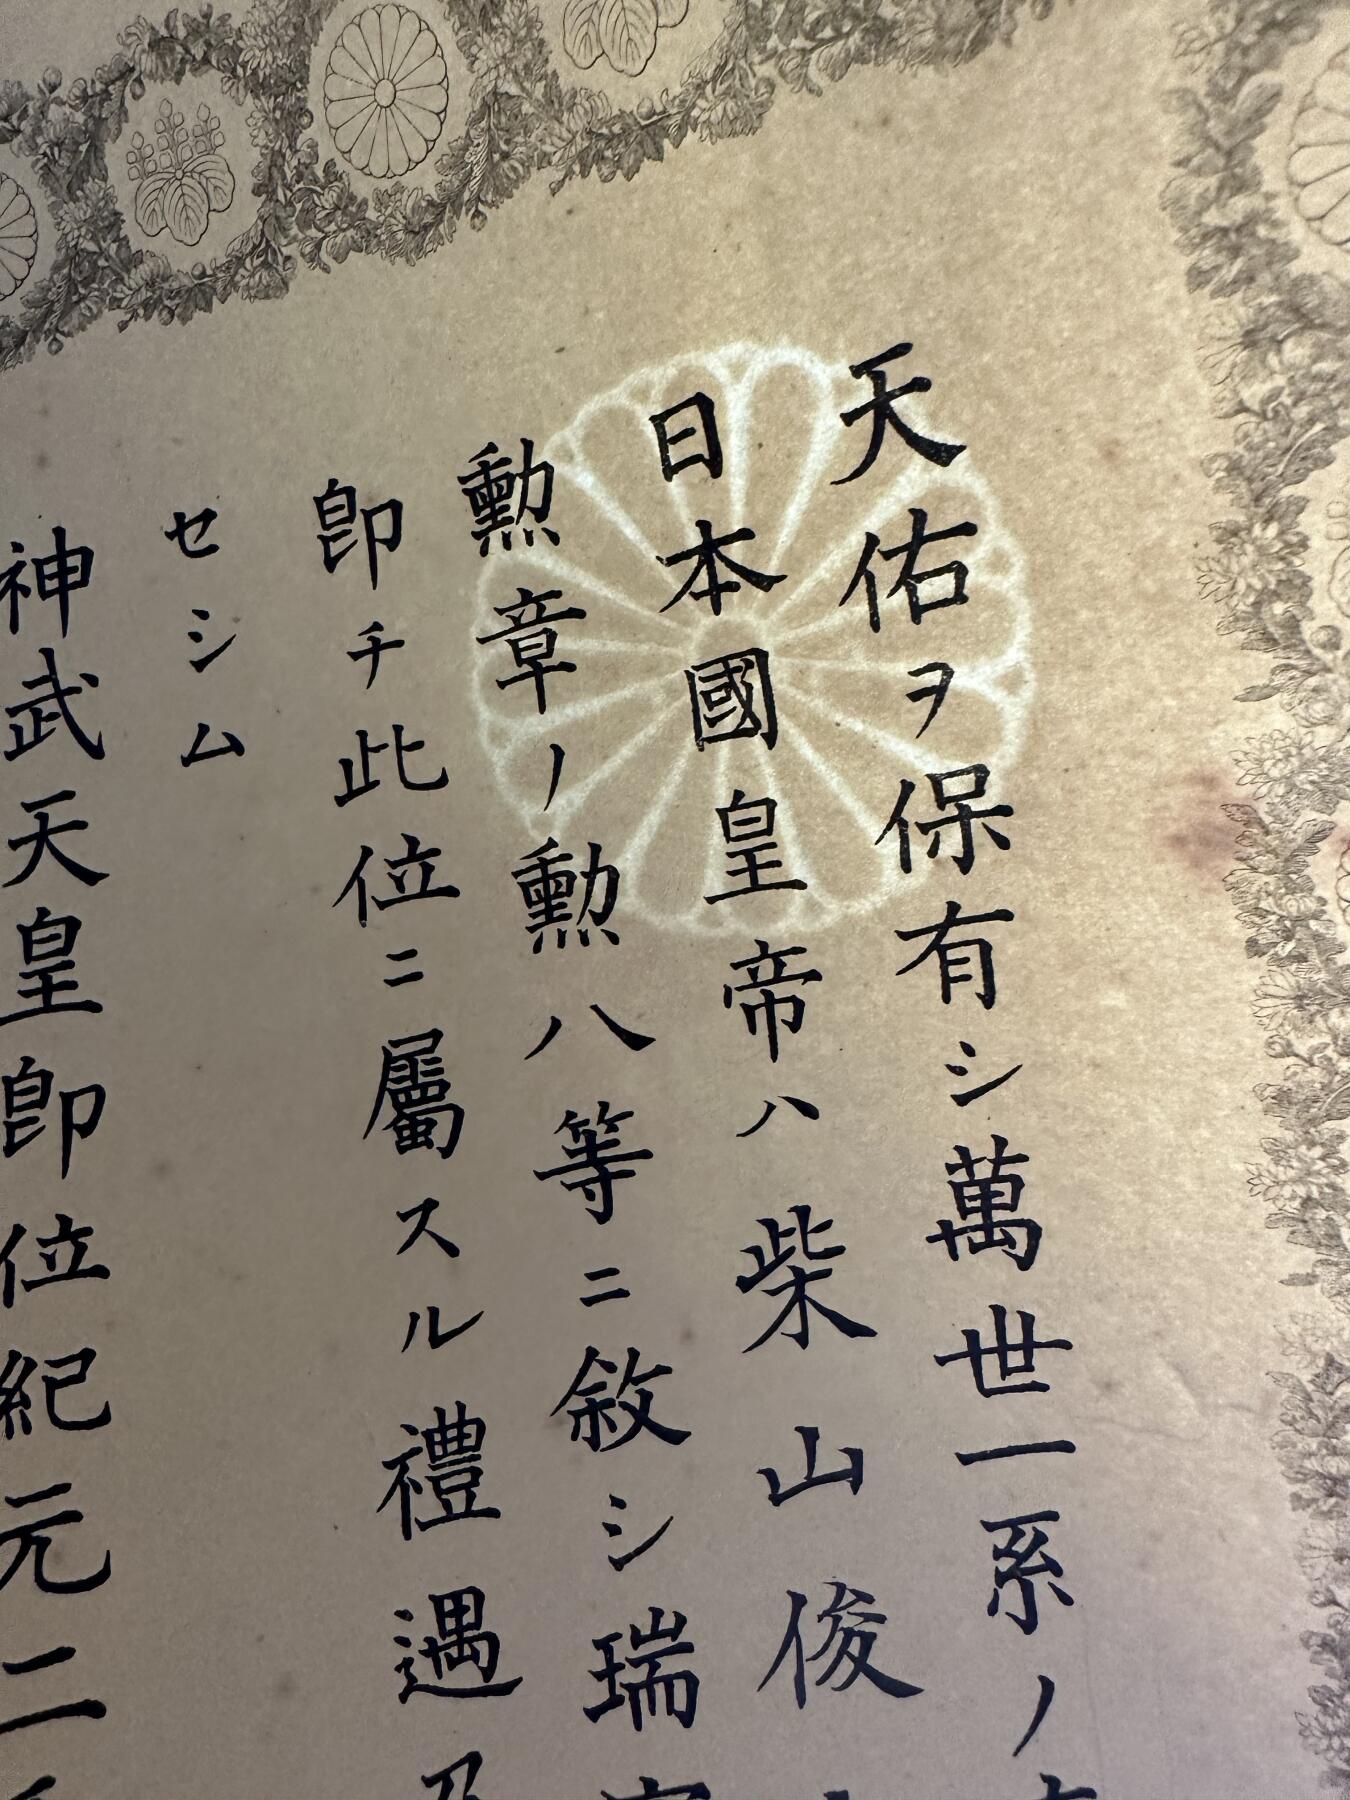 天佑ヲ保有シ萬世一系ノ
日本國皇帝ハ柴山俊
勲章ノ勲八等ニ敘シ瑞
卽チ此位ニ屬スル禮遇
セシム
神武天皇卽位紀元二